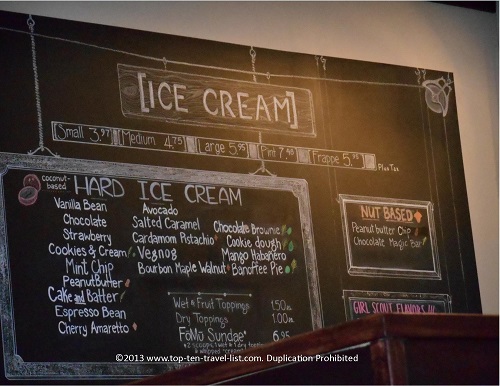 [ICE CREAM]
Small 3.97 Medium 4.75 Large 5.95 Pint 7.48 Frappe 5.95
Plus Tax
coconut-based
HARD ICE CREAM
Vanilla Bean
Chocolate
Strawberry
Cookies & Cream
Mint Chip
Peanutbutter
Cake and Batter
Espresso Bean
Cherry Amaretto
Avocado
Salted Caramel
Cardamom Pistachio
Vegnog
Bourbon Maple Walnut
Chocolate Brownie
Cookie dough
Mango Habañero
Banoffee Pie
Wet & Fruit Toppings 1.50
Dry Toppings 1.00
FoMu Sundae* 6.95
*2 scoops 1 wet & 1 dry
& whipped "cream"
NUT BASED
Peanut butter Chip
Chocolate Magic Bar
GIRL SCOUT FLAVORS
©2013 www.top-ten-travel-list.com. Duplication Prohibited